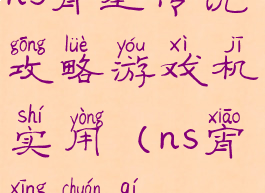 ns
gōng lüè yóu xì jī
攻略游戏机
shí yòng xiāo
实用（ns宵
xīng chuán qí